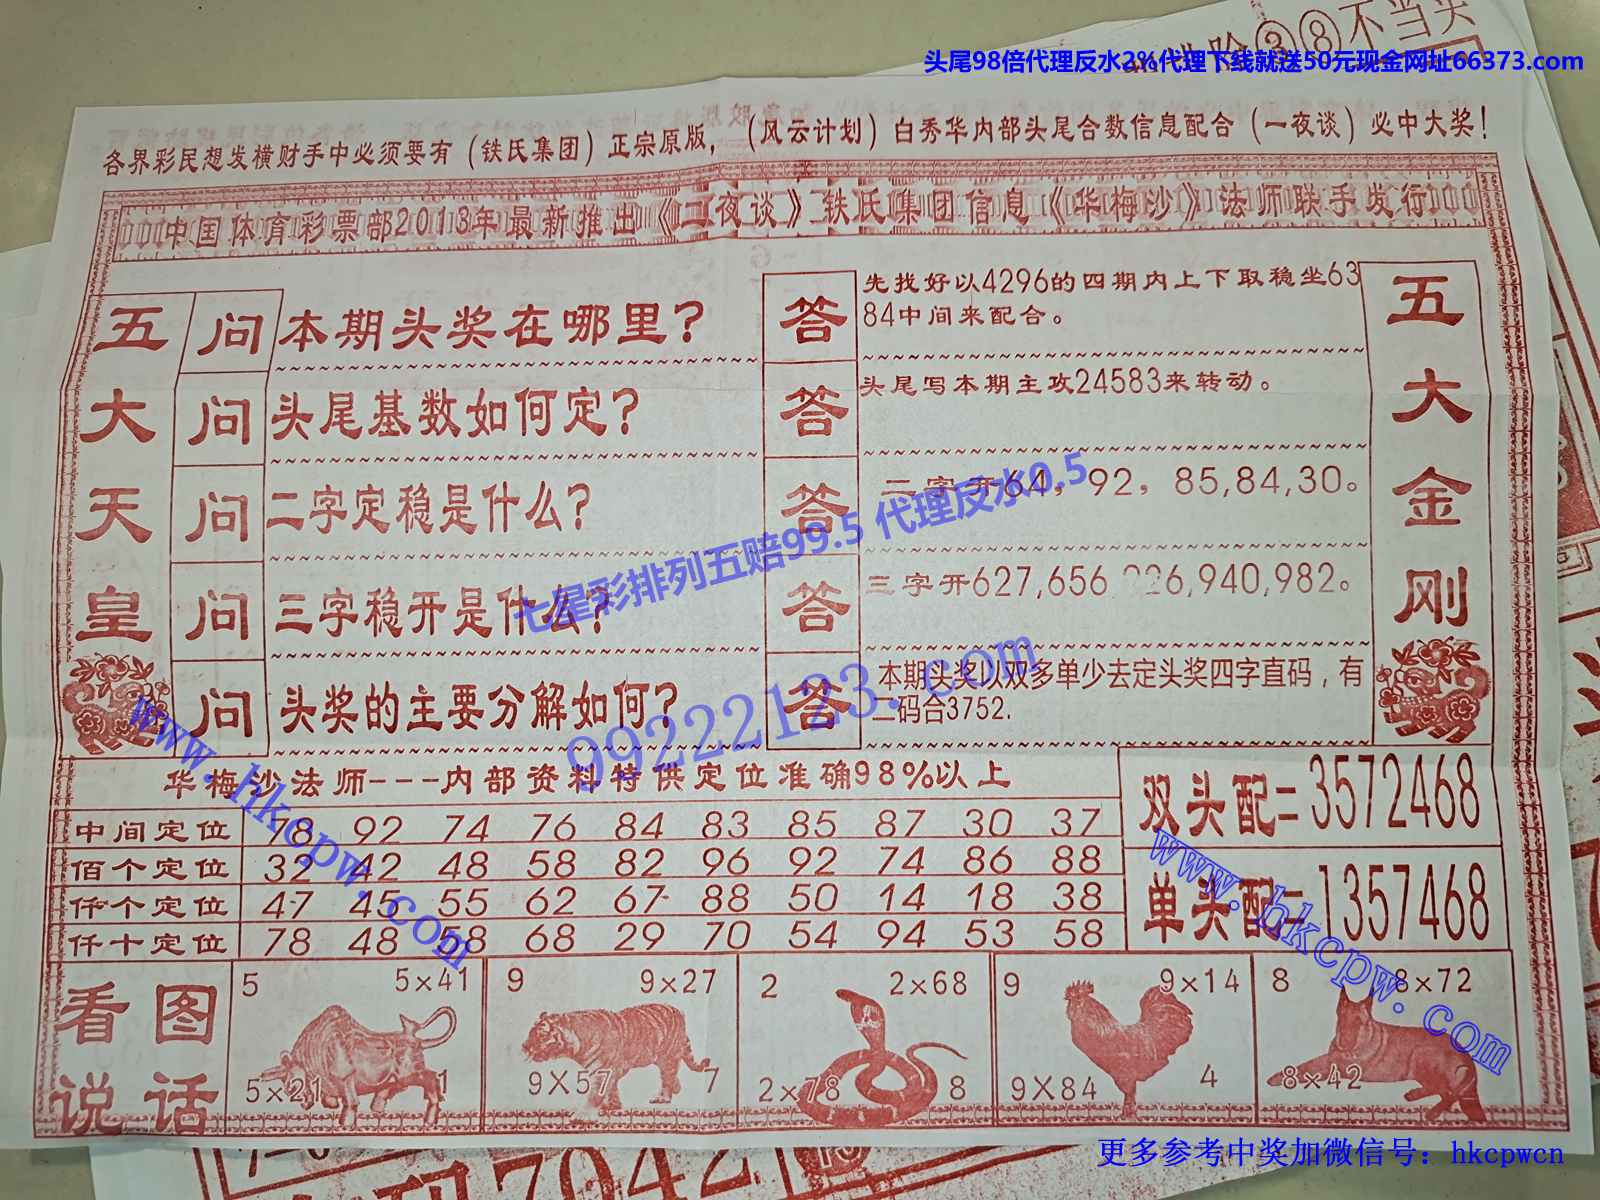 不当头
头尾98倍代理反水2%代理下线就送50元现金网址66373.com
各界彩民想发横财手中必须要有（铁氏集团）正宗原版，（风云计划）白秀华内部头尾合数信息配合（一夜谈）必中大奖！
中国体育彩票部2013年最新推出《一夜谈》铁氏集团信息《华梅沙》法师联手发行
五大天皇
问 本期头奖在哪里？
答 先找好以4296的四期内上下取稳坐63
84中间来配合。
问 头尾基数如何定？
答 头尾写本期主攻24583来转动。
问 二字定稳是什么？
答 二字开64，92，85,84,30。
问 三字稳开是什么？
答 三字开627,656,226,940,982。
问 头奖的主要分解如何？
答 本期头奖以双多单少去定头奖四字直码，有
二码合3752.
五大金刚
七星彩排列五赔99.5 代理反水0.5
99222123.com
www.hkcpw.com
华梅沙法师---内部资料特供定位准确98%以上
中间定位 78 92 74 76 84 83 85 87 30 37
佰个定位 32 42 48 58 82 96 92 74 86 88
仟个定位 47 45 55 62 67 88 50 14 18 38
仟十定位 78 48 58 68 29 70 54 94 53 58
双头配=3572468
单头配=1357468
www.hkcpw.com
看图
说话
5 5×41
5×21 1
9 9×27
9×57 7
2 2×68
2×78 8
9 9×14
9×84 4
8 8×72
8×42 2
更多参考中奖加微信号：hkcpwcn
7042